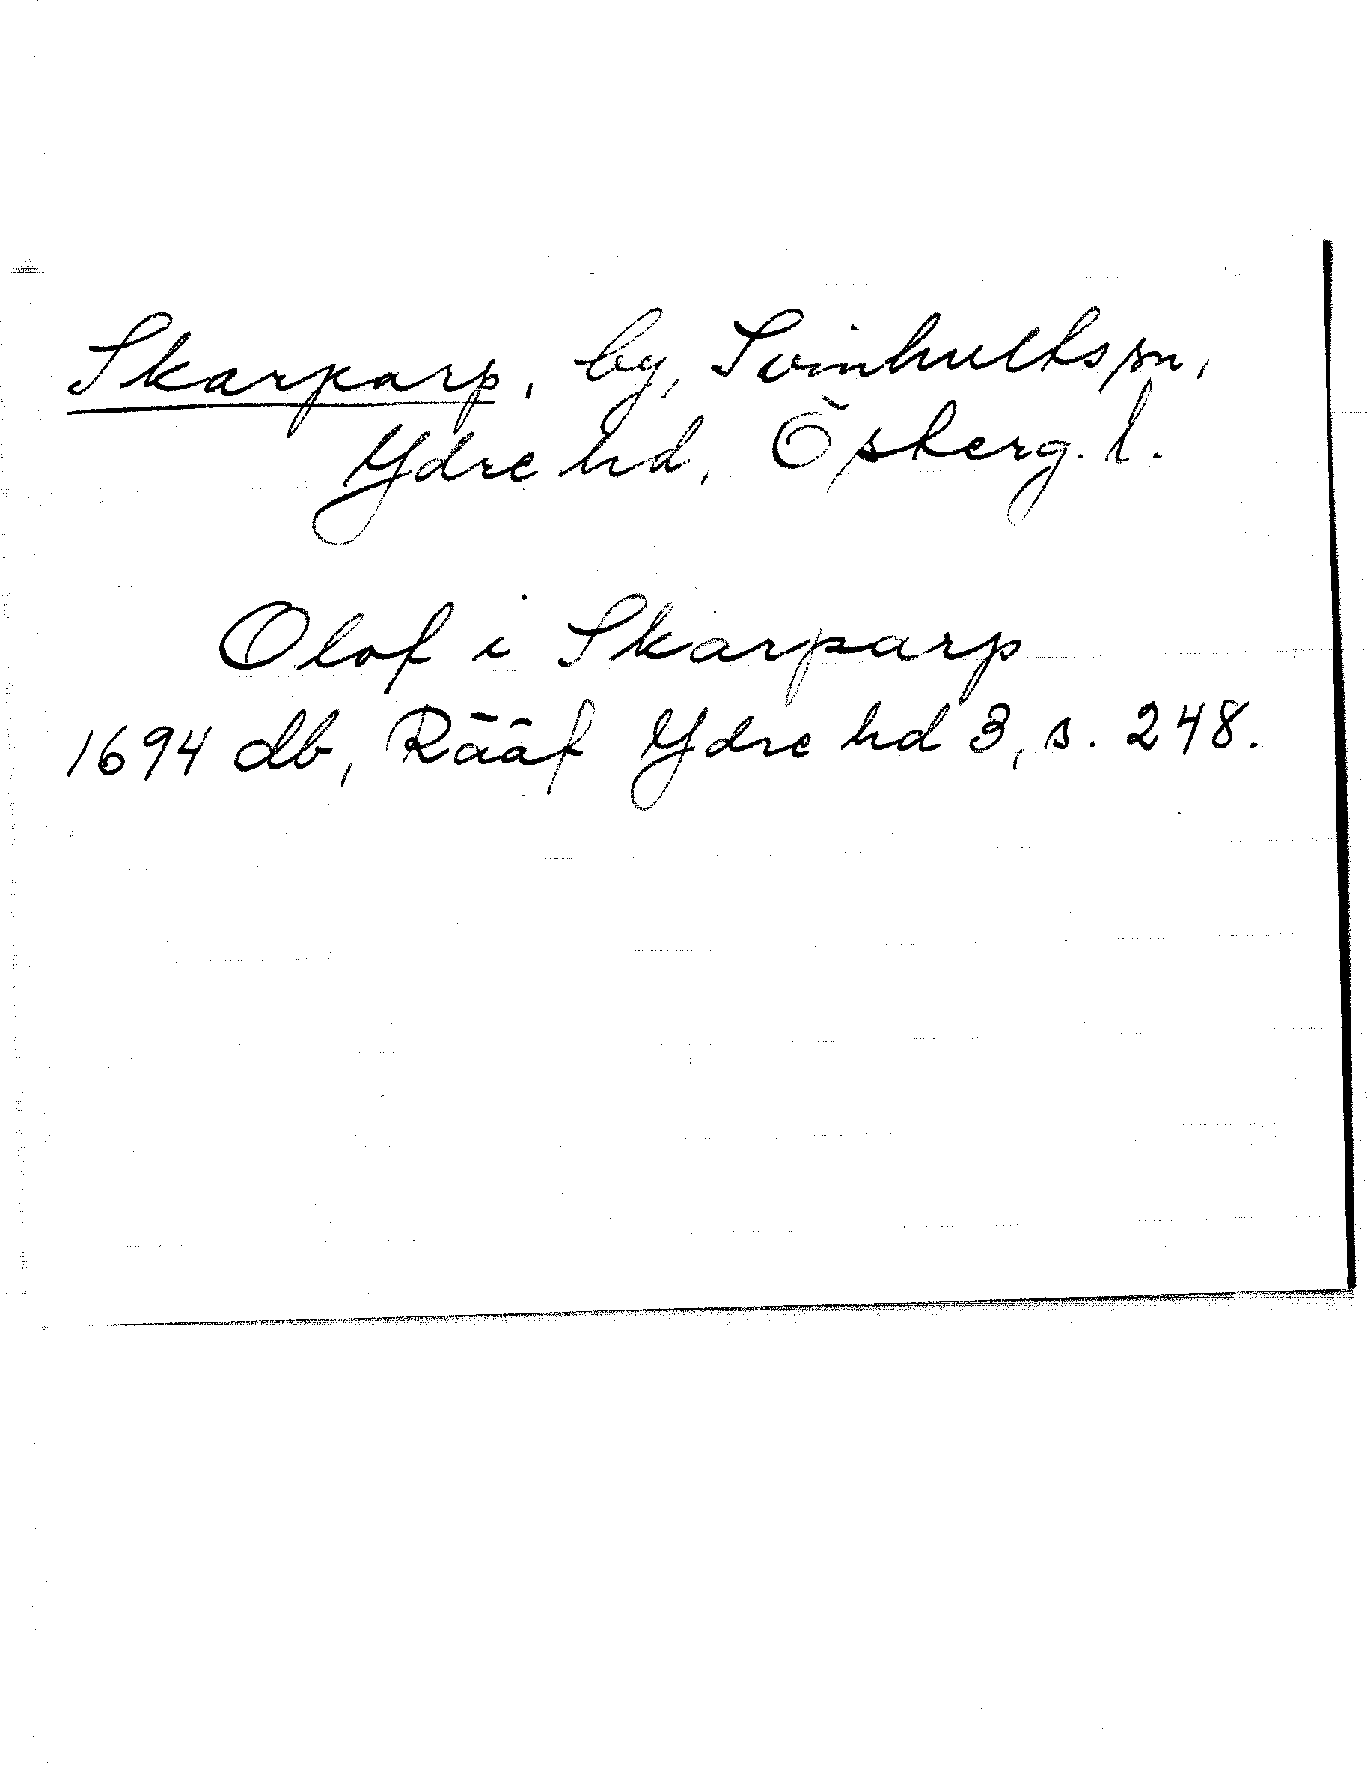 Skarparp, by, Svinhults sn,
Ydre hd, Österg. l.
Olof i Skarparp
1694 db, Rääf Ydre hd 3, s. 248.